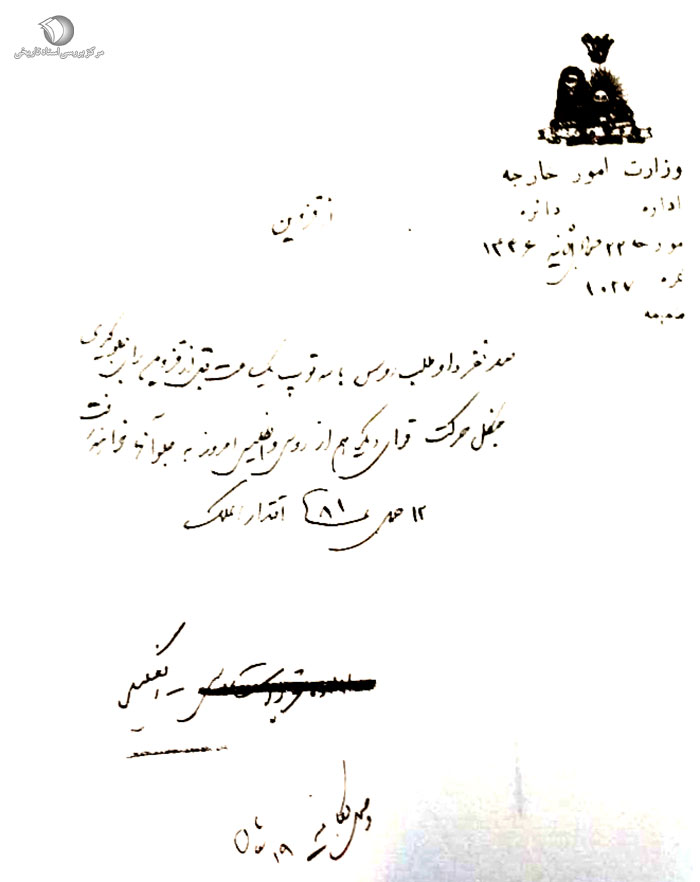 مرکز بررسی اسناد تاریخی
وزارت امور خارجه
اداره دائره
مورخه ۲۲ ۱۳۳۶
نمره ۱۰۲۷
ضمیمه
از قزوین
صد نفر داوطلب روس با سه توپ یک ساعت قبل از قزوین برای جلوگیری
جنگل حرکت قوای دیگر هم از روس و انگلیس امروز به جلو آنها خواهند رفت
۱۲ حمل ۸۱ اقتدار الملک
انگلیس
۱۹